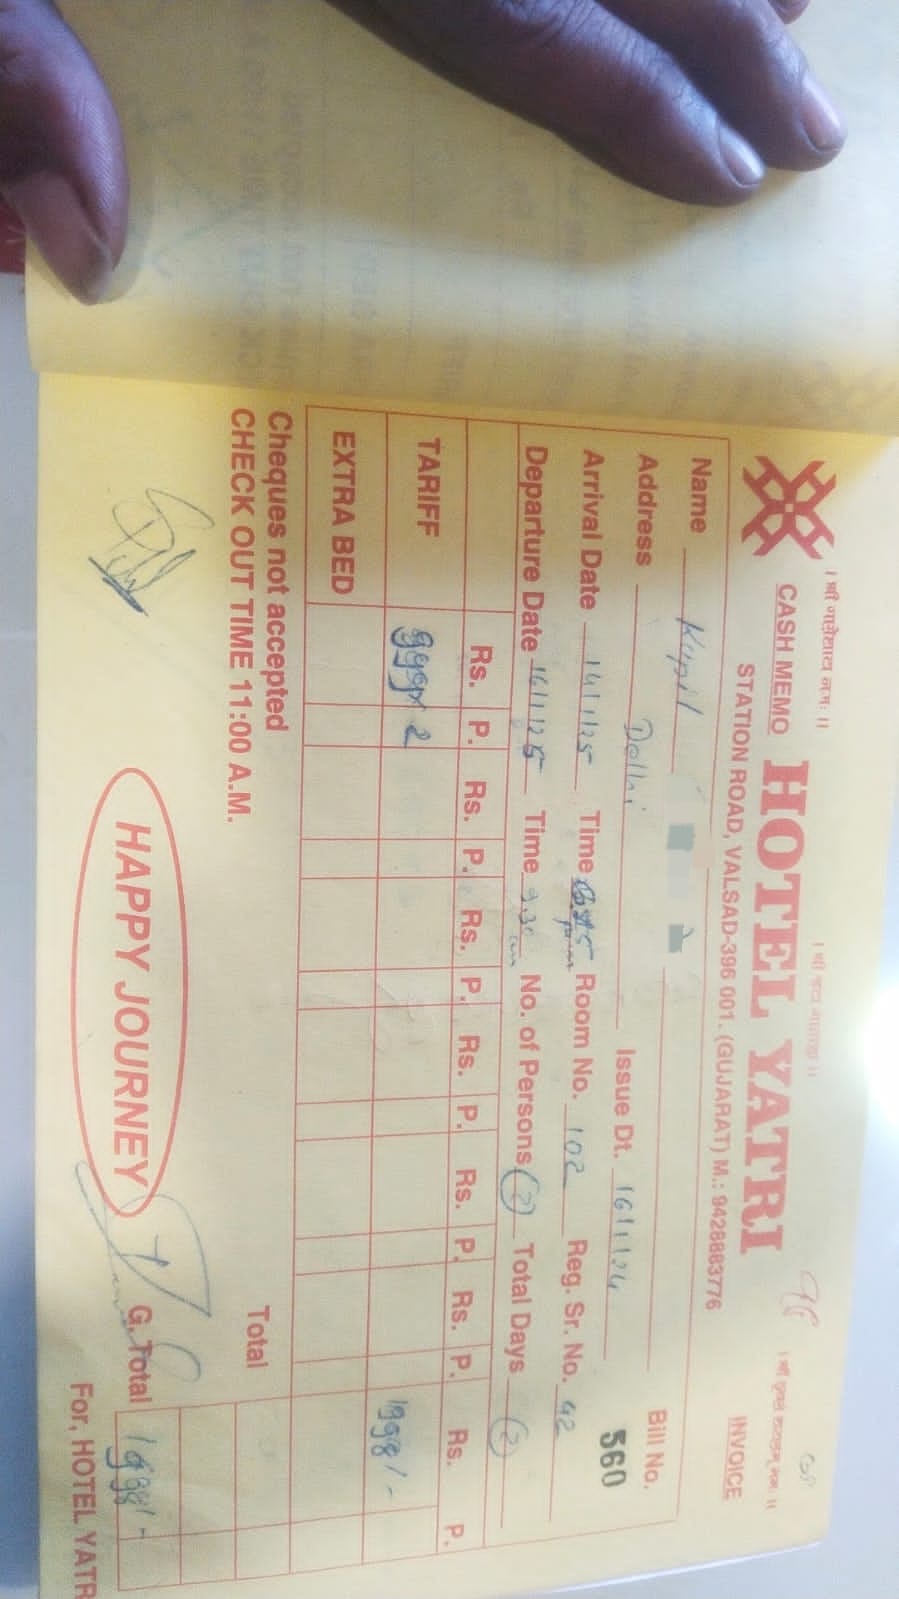 । श्री गणेशाय नमः ।।
CASH MEMO
INVOICE
HOTEL YATRI
STATION ROAD, VALSAD-396 001. (GUJARAT) M.: 9428883776
Name Kapil
Bill No. 560
Address Delhi Issue Dt. 16/1/24
Arrival Date 14/1/25 Time pm Room No. 102 Reg. Sr. No. 42
Departure Date 16/1/25 Time 9.30 am No. of Persons (2) Total Days (2)
Rs. P. Rs. P. Rs. P. Rs. P. Rs. P. Rs. P. Rs. P.
TARIFF 999x2 1998/-
EXTRA BED
Cheques not accepted
CHECK OUT TIME 11:00 A.M.
Total
HAPPY JOURNEY
G. Total 1998/-
For, HOTEL YATR